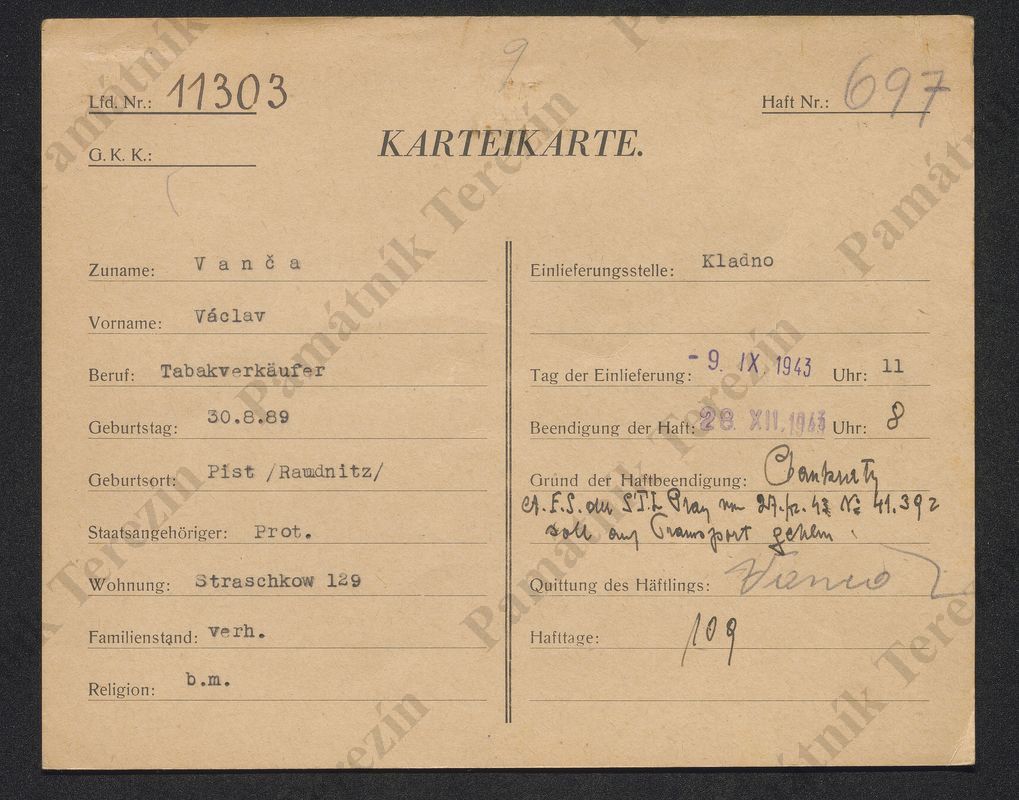 9
Lfd. Nr.: 11303
Haft Nr.: 697
G. K. K.:
KARTEIKARTE.
Zuname: Vanča
Vorname: Václav
Beruf: Tabakverkäufer
Geburtstag: 30.8.89
Geburtsort: Pist /Raudnitz/
Staatsangehöriger: Prot.
Wohnung: Straschkow 129
Familienstand: verh.
Religion: b.m.
Einlieferungsstelle: Kladno
Tag der Einlieferung: - 9. IX 1943 Uhr: 11
Beendigung der Haft: 28. XII. 1943 Uhr: 8
Grund der Haftbeendigung: Pankratz
F.S. der ST.L Prag vom 27./12. 43 No 41.392
soll auf Transport gehen.
Quittung des Häftlings:
Hafttage: 109
Památník Terezín